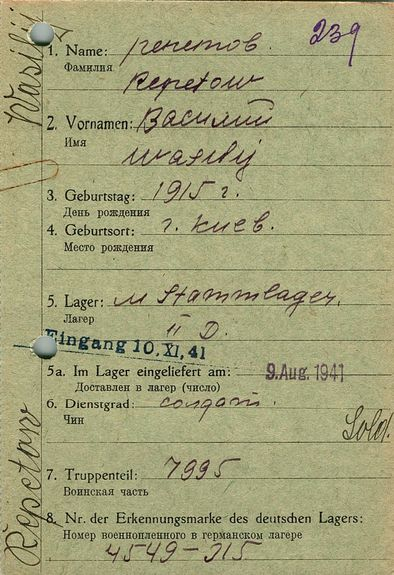 239
1. Name: репетов.
Фамилия
Repetow
2. Vornamen: Василий
Имя
Wasilij
3. Geburtstag: 1915 г.
День рождения
4. Geburtsort: г. Киев.
Место рождения
5. Lager: M Stammlager.
Лагер
II D.
Eingang 10. XI. 41
5a. Im Lager eingeliefert am: 9. Aug. 1941
Доставлен в лагер (число)
6. Dienstgrad: солдат.
Чин
Sold.
7. Truppenteil: 7995
Воинская часть
8. Nr. der Erkennungsmarke des deutschen Lagers:
Номер военнопленного в германском лагере
4549-315
Repetow
Wasilij